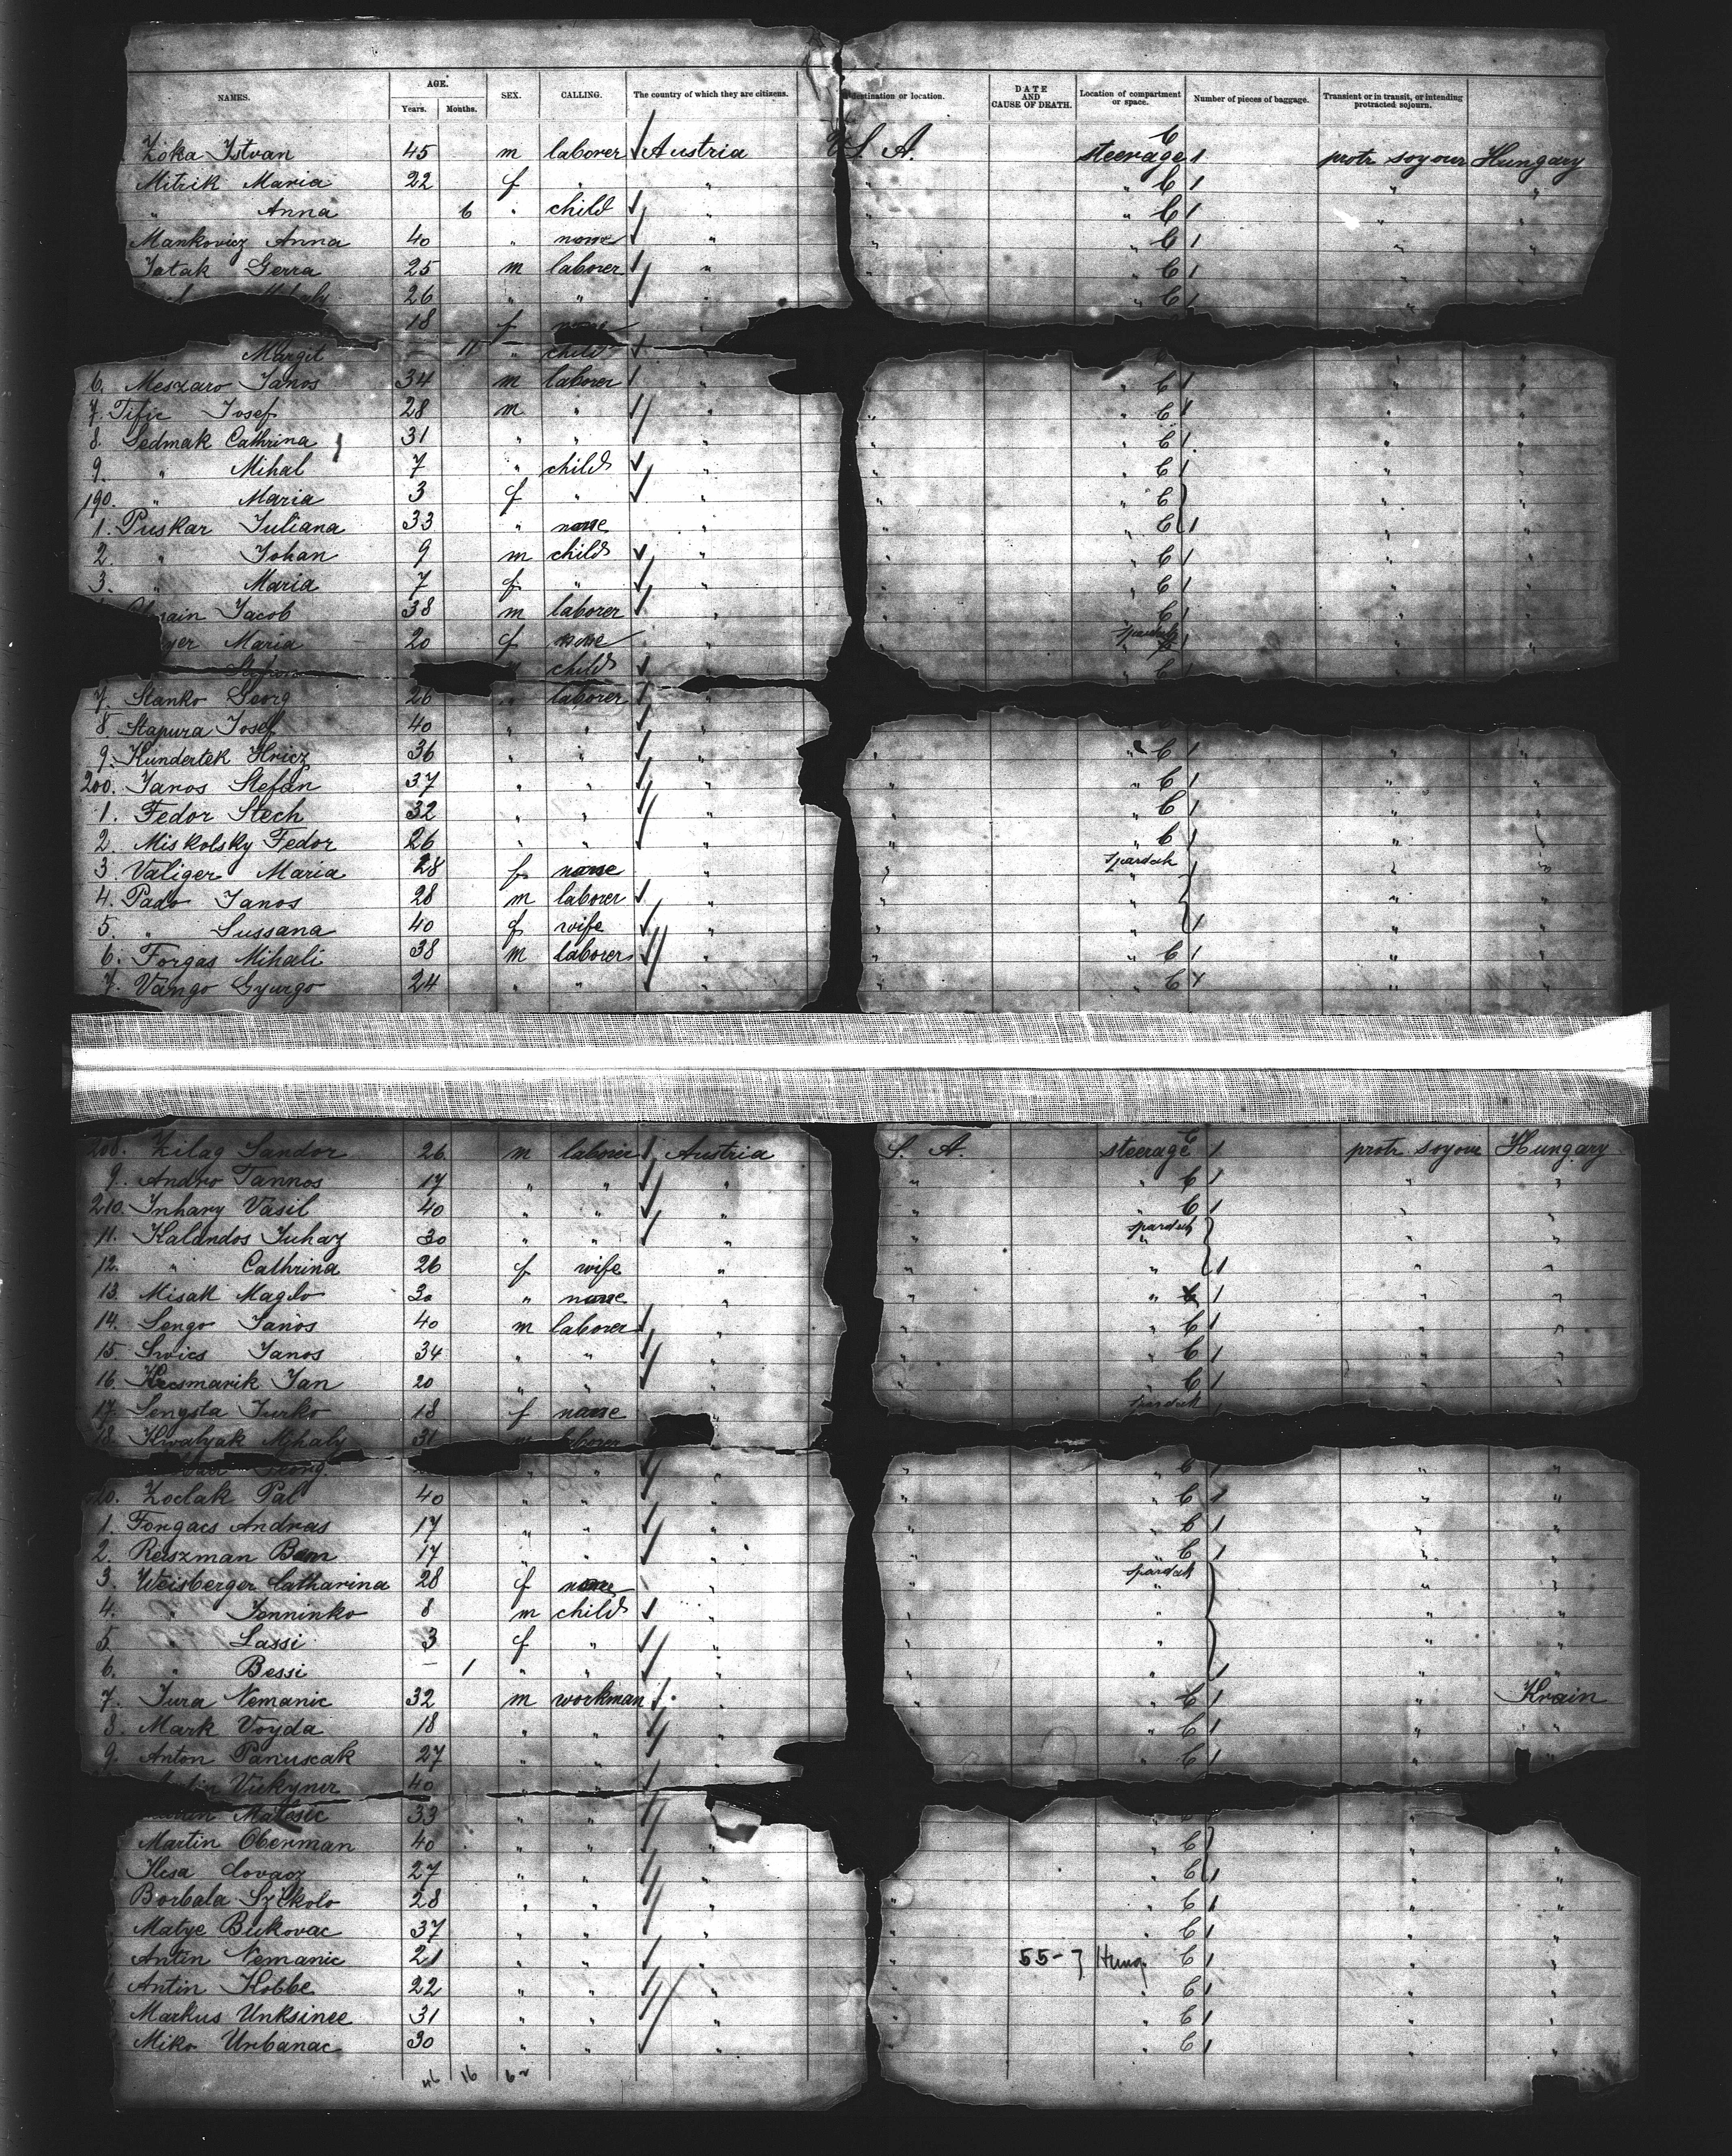 NAMES. AGE. Years. Months. SEX. CALLING. The country of which they are citizens. destination or location. DATE AND CAUSE OF DEATH. Location of compartment or space. Number of pieces of baggage. Transient or in transit, or intending protracted sojourn.
Zoka Istvan 45 m laborer Austria S. A. steerage C 1 protr soyour Hungary
Mitrik Maria 22 f " " " " C 1 " "
" Anna 6 " child " " " C 1 " "
Mankovicz Anna 40 " none " " " C 1 " "
Jatak Gerra 25 m laborer " " " C 1 " "
26 " " " C 1 "
18 f none
" Margit - 11 " child
6. Meszaro Janos 34 m laborer " " C 1 " "
7. Tific Josef 28 m " " " " C 1 " "
8. Sedmak Cathrina 31 " " " " " C 1 " "
9. " Mihal 7 " child " " " C 1 " "
190. " Maria 3 f " " " " C " "
1. Puskar Juliana 33 " none " " " C 1 " "
2. " Johan 9 m child " " " C 1 " "
3. " Maria 7 f " " " " C 1 " "
Jacob 38 m laborer " " " C 1 " "
Maria 20 f none " " spardeck " 1 " "
child C
7. Stanko Georg 26 " laborer "
8. Stapura Josef 40 " " "
9. Kundertek Hricz 36 " " " " " C 1 " "
200. Janos Stefan 37 " " " " " C 1 " "
1. Fedor Stech 32 " " " " C 1 " "
2. Miskolsky Fedor 26 " " " " " C 1 " "
3. Valiger Maria 28 f none " " spardeck " " "
4. Pado Janos 28 m laborer " " " " "
5. " Sussana 40 f wife " " " 1 " "
6. Forgas Mihali 38 m laborer " " " C 1 " "
7. Vango Gyurgo 24 " " " " " C 1 " "
208. Zilag Sandor 26 m laborer Austria S. A. steerage C 1 protr soyour Hungary
9. Andro Jannos 17 " " " " " C 1 " "
210. Inhary Vasil 40 " " " " " C 1 " "
11. Kalandos Juhaz 30 " " " " spardeck " " "
12. " Cathrina 26 f wife " " " 1 " "
13. Misak Magdo 30 " none " " " 1 " "
14. Sengo Janos 40 m laborer " " " C 1 " "
15. Swics Janos 34 " " " " " C 1 " "
16. Kecsmarik Jan 20 " " " " " C 1 " "
17. Sengsta Jurko 18 f none " " spardeck
18. Kwalyak Mihaly 31 m laborer
Georg " " " C 1 " "
20. Zoclak Pal 40 " " " " " C 1 " "
1. Forgacs Andras 17 " " " " " C 1 " "
2. Reiszman 17 " " " " " C 1 " "
3. Weisberger Catharina 28 f none " " spardeck " " "
4. " Jenninko 8 m child " " " " "
5. " Lassi 3 f " " " " " "
6. " Bessi - 1 " " " " " 1 " "
7. Jura Nemanic 32 m workman " " " C 1 " Krain
8. Mark Voyda 18 " " " " " C 1 " "
9. Anton Panuscak 27 " " " " " C 1 " "
Vickyner 40 " "
Malesic 33 " " " "
Martin Oberman 40 " " " " C " "
Ilesa Covacz 27 " " " " C 1 " "
Borbala Szekolo 28 " " " " " C 1 " "
Matye Bukovac 37 " " " " C 1 " "
Antin Nemanic 21 " " " " 55-7 Hung. C 1 " "
Antin Kobbe 22 " " " " " C 1 " "
Markus Unksinee 31 " " " " C 1 " "
Miko Urbanac 30 " " " " C 1 " "
46 16